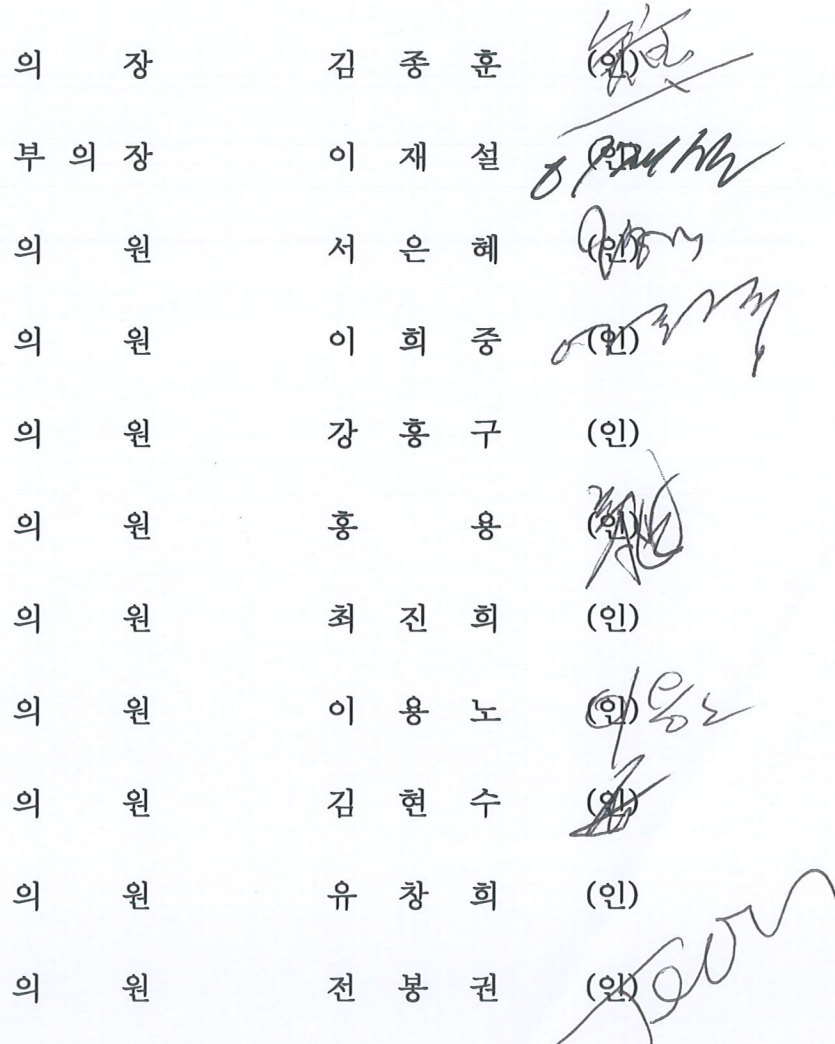 의 장 김 종 훈 (인)
부 의 장 이 재 설 (인)
의 원 서 은 혜 (인)
의 원 이 희 중 (인)
의 원 강 흥 구 (인)
의 원 홍 용 (인)
의 원 최 진 희 (인)
의 원 이 용 노 (인) 이용노
의 원 김 현 수 (인)
의 원 유 창 희 (인)
의 원 전 봉 권 (인)